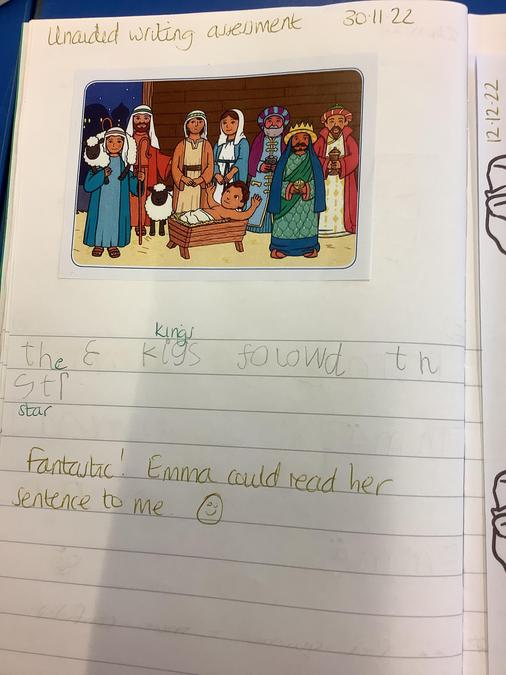 Unaided writing assessment 30.11.22
12.12.22
kings
the 3 kigs folowd th
str
star
Fantastic! Emma could read her
sentence to me